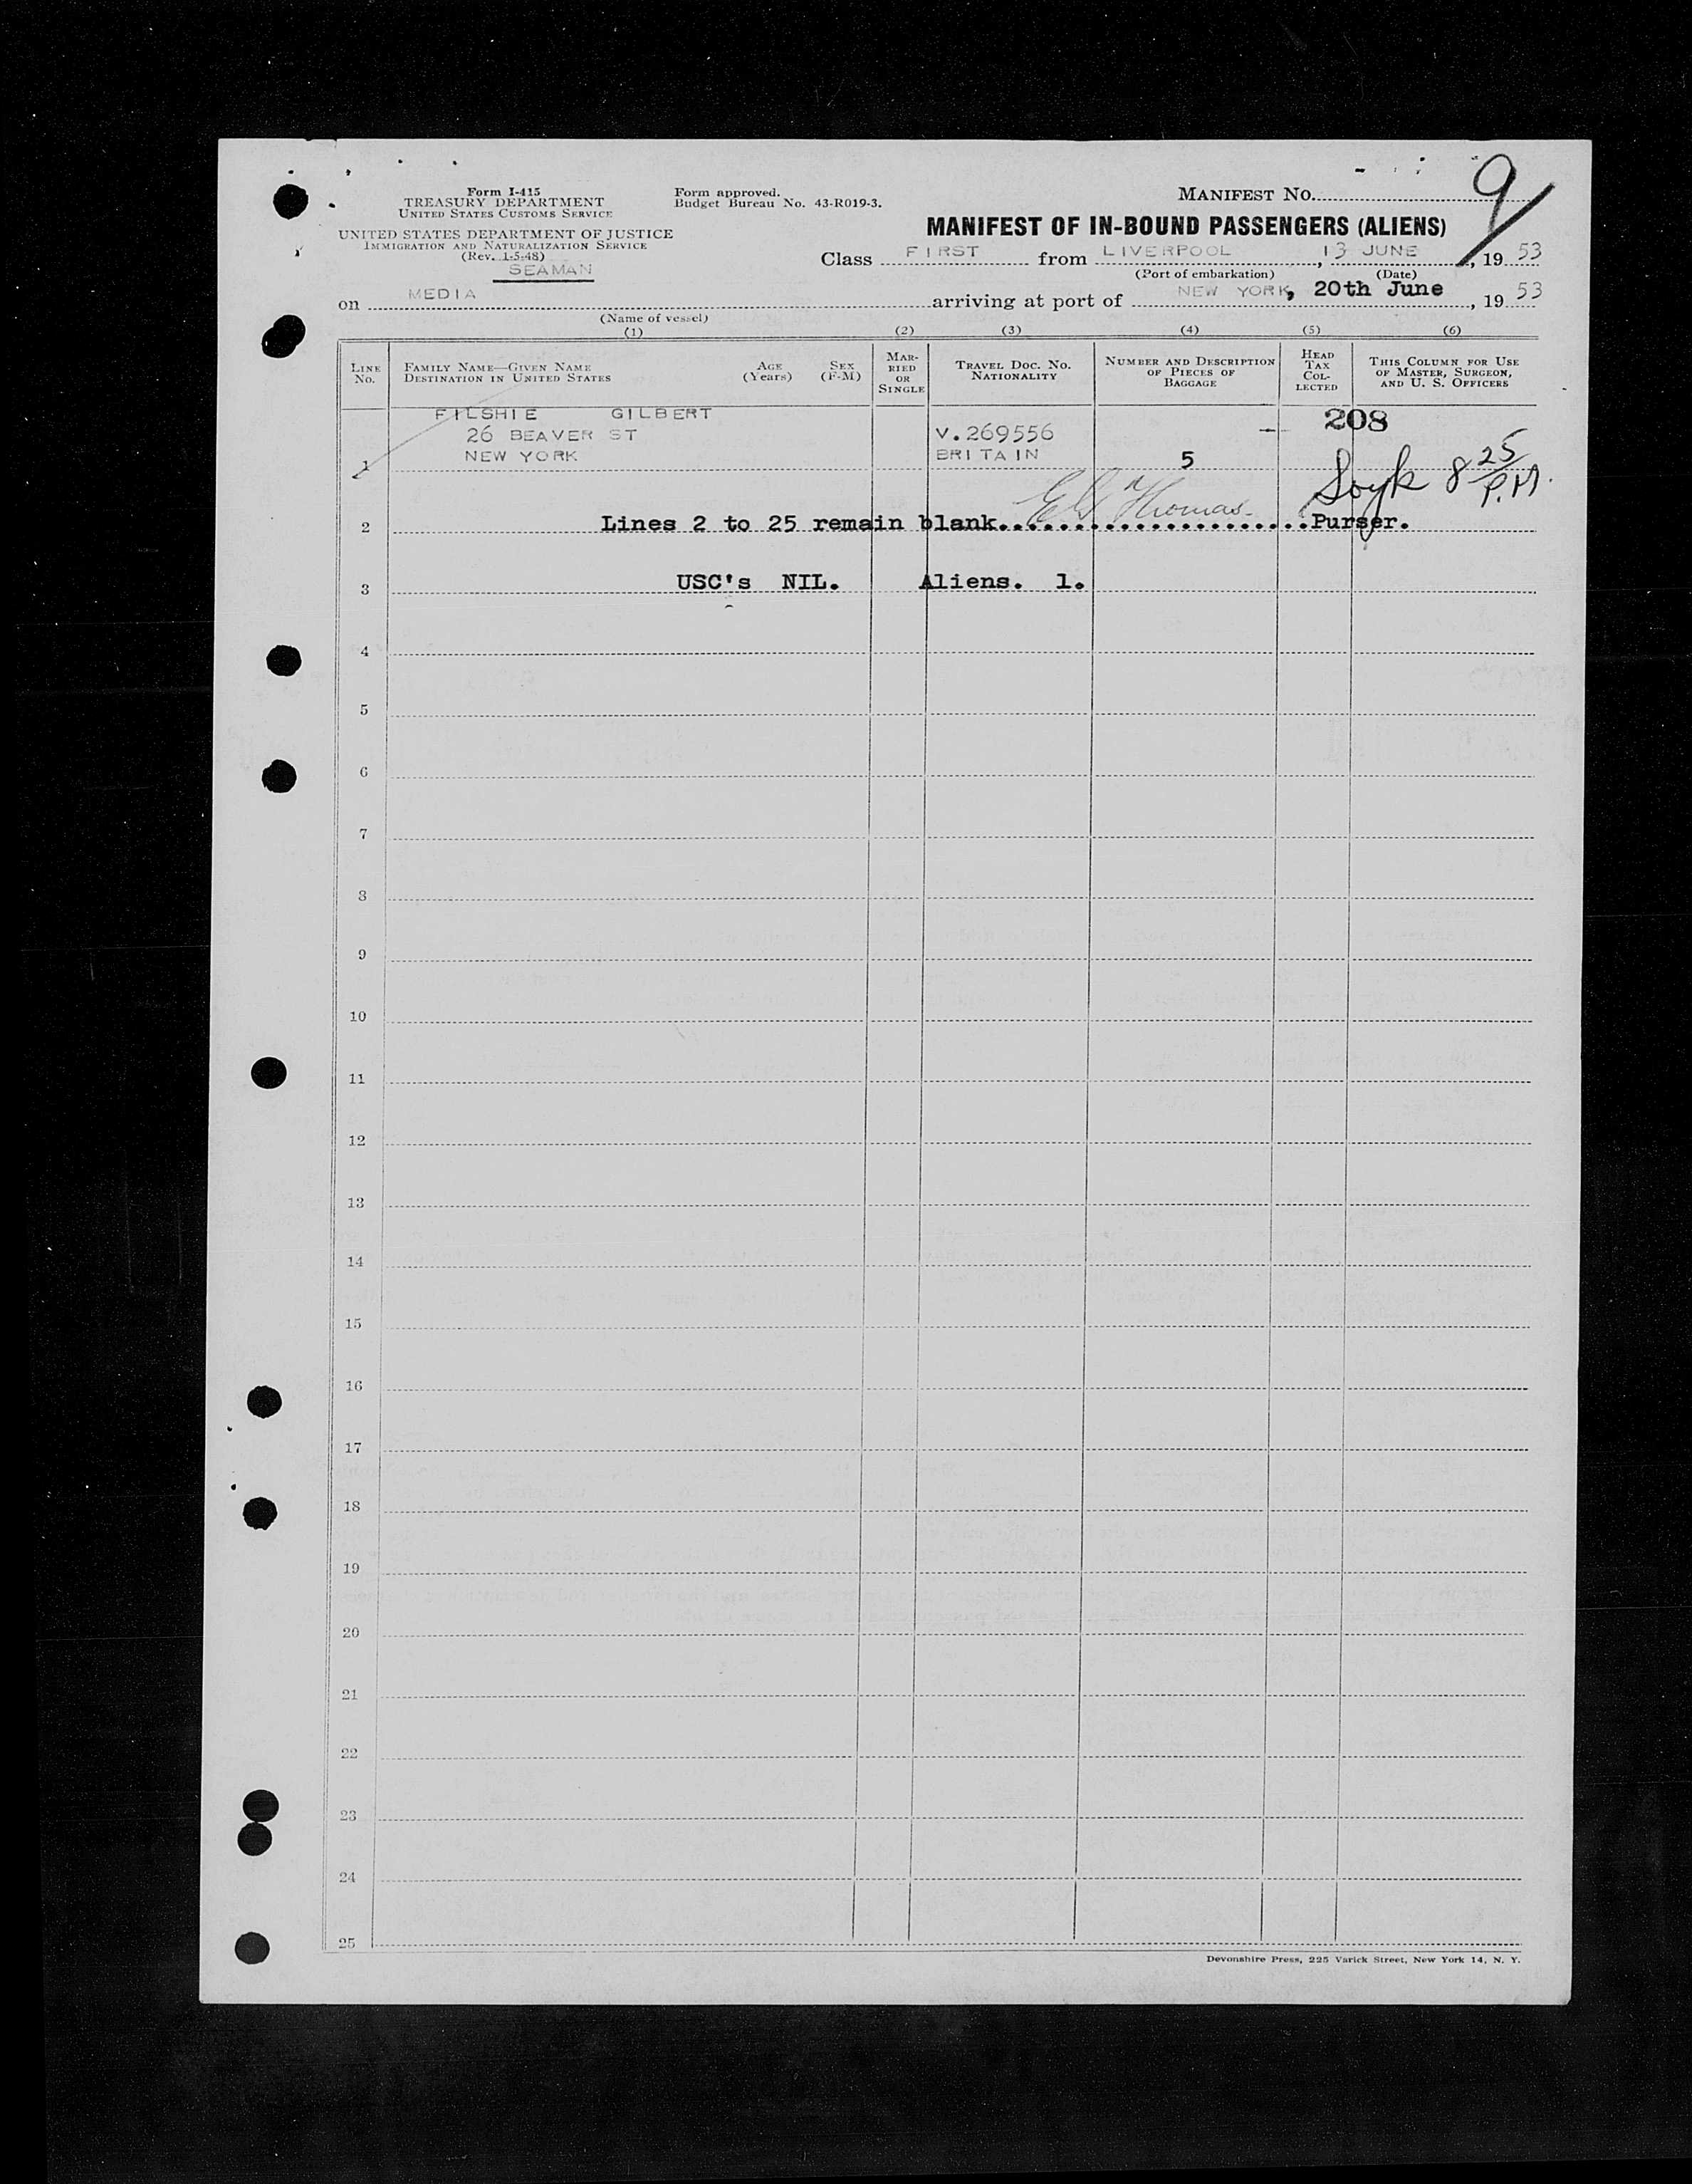 Form I-415
TREASURY DEPARTMENT
UNITED STATES CUSTOMS SERVICE
UNITED STATES DEPARTMENT OF JUSTICE
IMMIGRATION AND NATURALIZATION SERVICE
(Rev. 1-5-48)
SEAMAN
Form approved.
Budget Bureau No. 43-R019-3.
MANIFEST NO. 9
MANIFEST OF IN-BOUND PASSENGERS (ALIENS)
Class FIRST from LIVERPOOL, 13 JUNE, 19 53
(Port of embarkation) (Date)
on MEDIA arriving at port of NEW YORK, 20th June, 19 53
(Name of vessel)
(1) (2) (3) (4) (5) (6)
LINE No.
FAMILY NAME—GIVEN NAME
DESTINATION IN UNITED STATES
AGE (Years)
SEX (F-M)
MARRIED OR SINGLE
TRAVEL DOC. NO. NATIONALITY
NUMBER AND DESCRIPTION OF PIECES OF BAGGAGE
HEAD TAX COLLECTED
THIS COLUMN FOR USE OF MASTER, SURGEON, AND U. S. OFFICERS
FILSHIE GILBERT 208
26 BEAVER ST V.269556 —
1 NEW YORK BRITAIN 5
8 25 P.M.
2 Lines 2 to 25 remain blank. Thomas Purser.
3 USC's NIL. Aliens. 1.
4
5
6
7
8
9
10
11
12
13
14
15
16
17
18
19
20
21
22
23
24
25
Devonshire Press, 225 Varick Street, New York 14, N. Y.